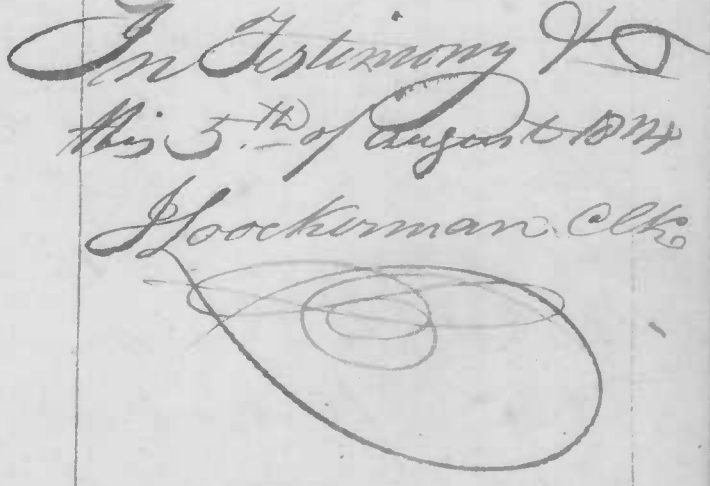 In Testimony &c
this 5th of August 1824
J Loockerman Clk